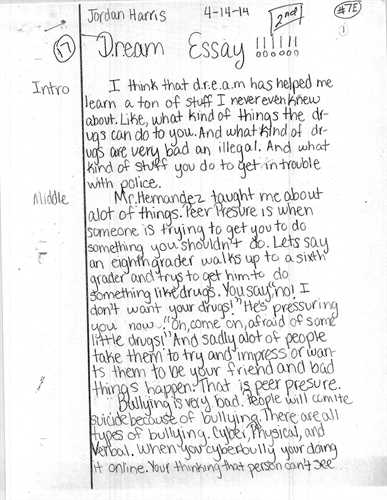 Jordan Harris 4-14-14 2nd #7E
17 Dream Essay !!!!!! 1
Intro I think that d.r.e.a.m has helped me
learn a ton of stuff I never even knew
about. Like, what kind of things the dr-
ugs can do to you. And what kind of dr-
ugs are very bad an illegal. And what
kind of stuff you do to get in trouble
with police.
Middle Mr. Hernandez taught me about
alot of things. Peer Presure is when
someone is trying to get you to do
something you shouldn't do. Lets say
an eighth grader walks up to a sixth
grader and trys to get him to do
something like drugs. You say,"no! I
don't want your drugs!" He's pressuring
you now. "Oh, come on, afraid of some
little drugs!" And sadly alot of people
take them to try and impress or wan-
ts them to be your friend and bad
things happen. That is peer presure.
Bullying is very bad. People will comite
suicide because of bullying. There are all
types of bullying. Cyber, Physical, and
Verbal. When your cyberbully your doing
it online. Your thinking that person can't see